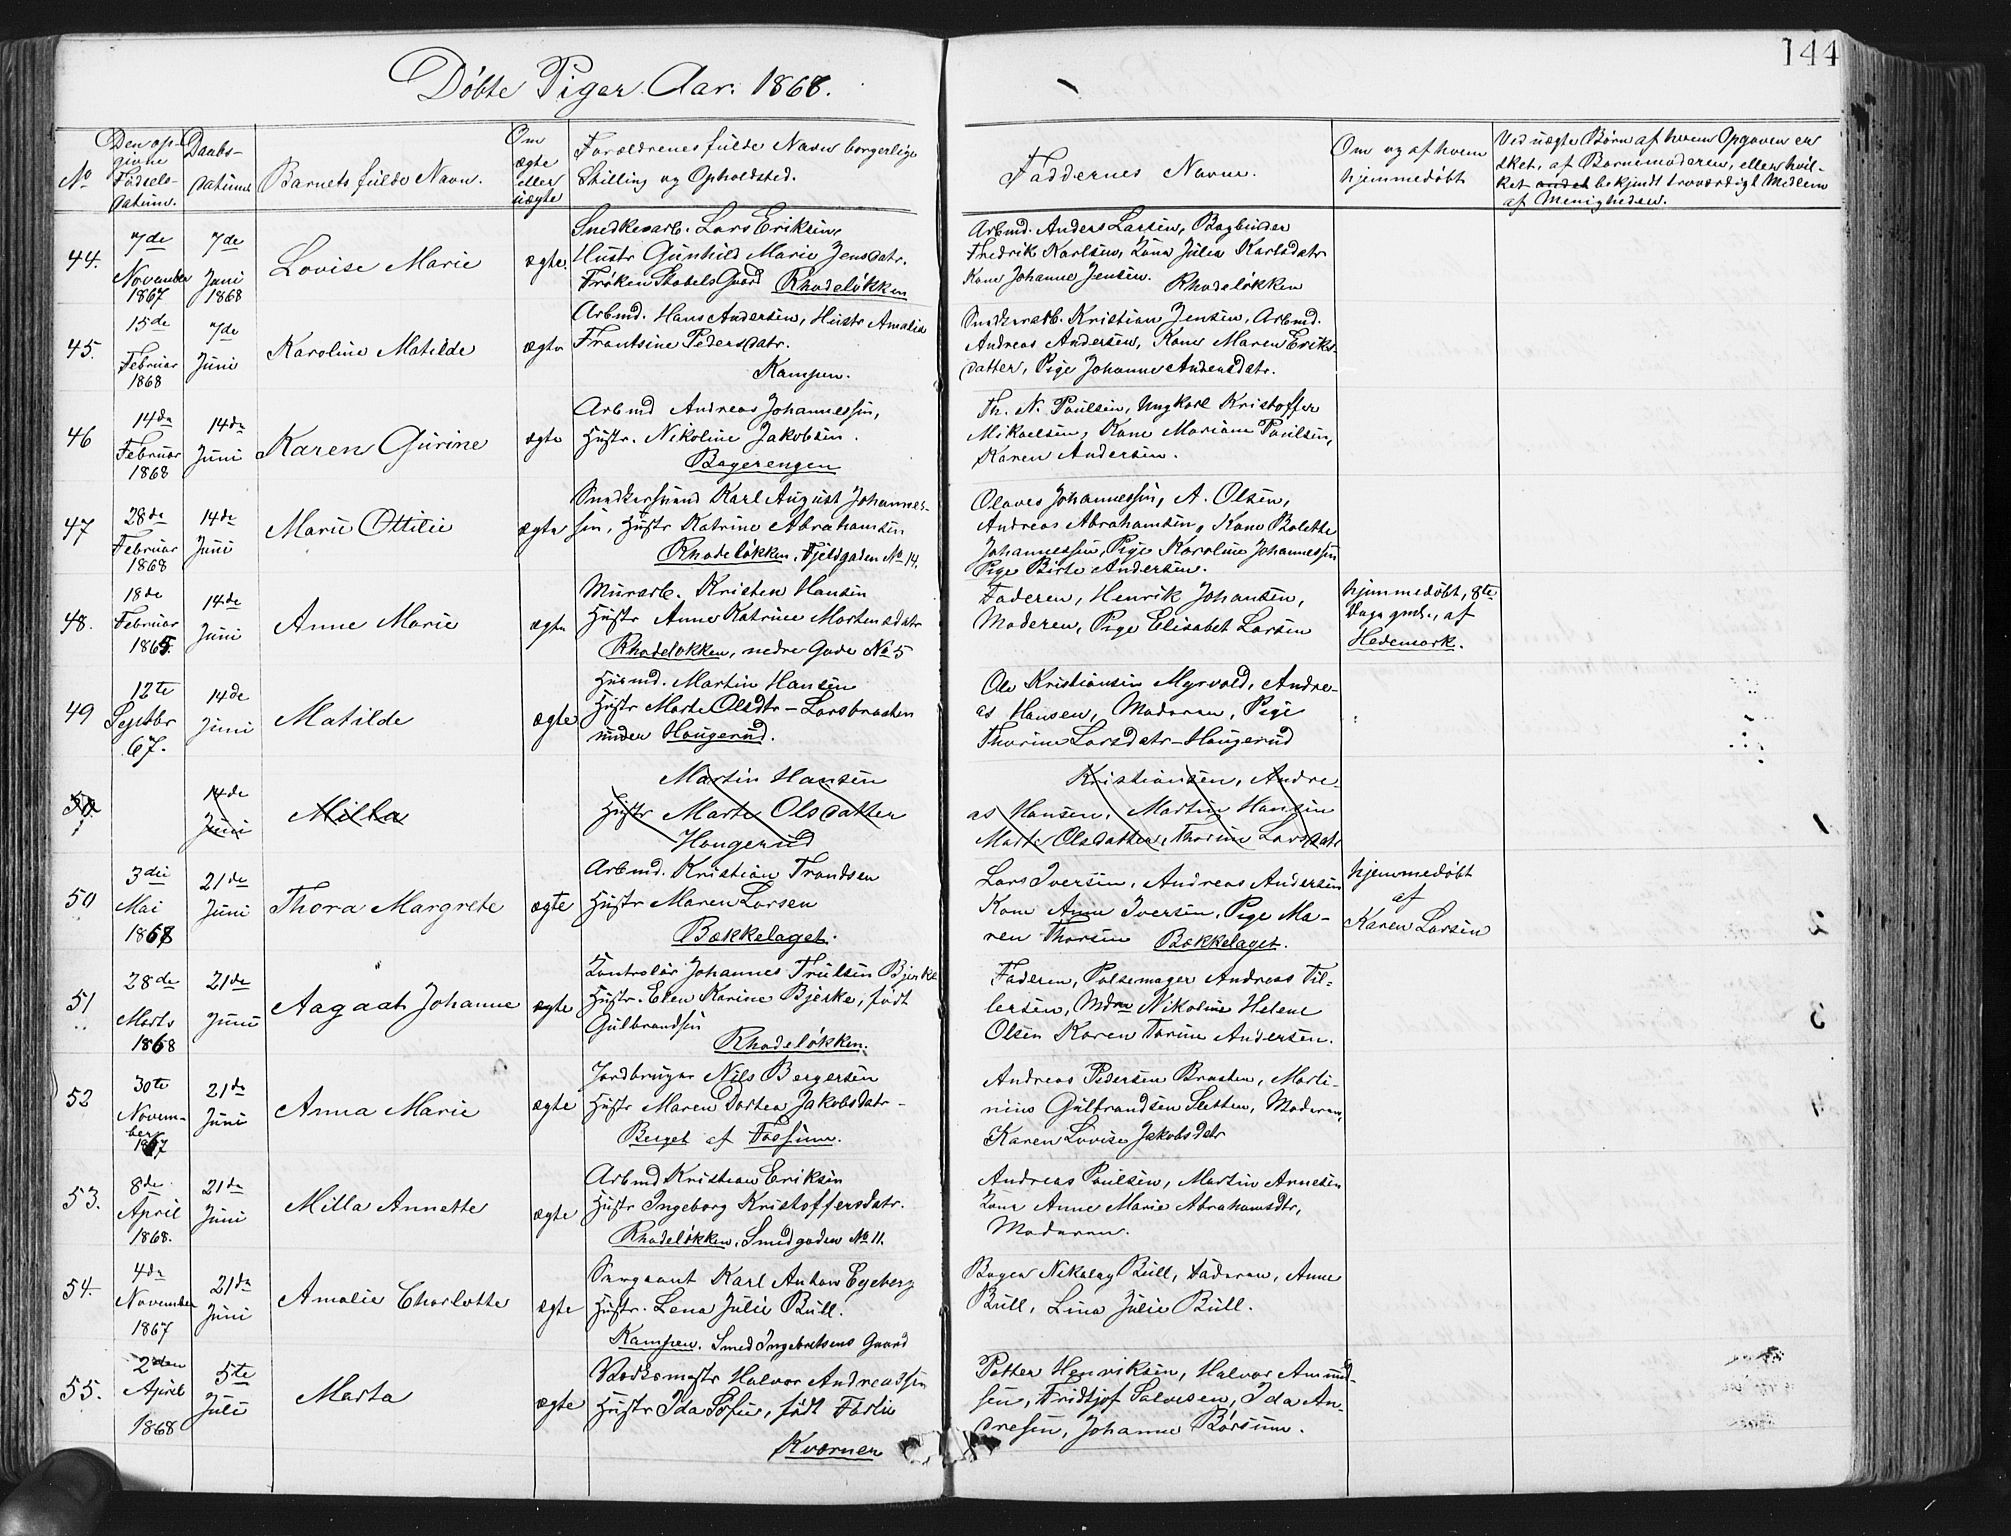 144
Døbte Piger Aar. 1868.
No
Den op-
givne
Fødsels-
datum.
Daabs-
datum
Barnets fulde Navn.
Om
ægte
eller
uægte
Forældrenes fulde Navn borgerlige
Stilling og Opholdsted.
Faddernes Navne.
Om og af hvem
hjemmedøbt
Ved uægte Børn af hvem Opgaven er
sket, af Barnemoderen, eller hvil-
ket andet bekjendt troværdigt Medlem
af Menigheden.
44.
7de
November
1867
7de
Juni
1868
Lovise Marie
ægte.
Snedkerarb. Lars Eriksen,
Hustr Gunhild Marie Jensdatr.
Frøken Stabels Gaard Rhodeløkken
Arbmd. Anders Larsen, Bogbinder
Fredrik Karlsen, Kone Julia Karlsdatr
Kone Johanne Jensen. Rhodeløkken
45.
15de
Februar
1868
7de
Juni
Karoline Matilde
ægte
Arbmd. Hans Andersen, Hustr Amalia
Frantsine Pedersdatr.
Kampen.
Snedkerarb. Kristian Jensen, Arbmd.
Andreas Andersen, Kone Maren Eriks-
datter, Pige Johanne Andersdatr.
46
14de
Februar
1868
14de
Juni
Karen Gurine
ægte
Arbmd Andreas Johannessen,
Hustr. Nikoline Jakobsen.
Bagerengen
Th. N. Poulsen, Ungkarl Kristoffer
Mikaelsen, Kone Mariane Poulsen,
Karen Andersen.
47
28de
Februar
1868
14de
Juni
Marie Ottilie
ægte
Snedkersvend Karl August Johannes-
sen, Hustr Katrine Abrahamsen
Rhodeløkken, Fjeldgaden No 14.
Olaves Johannessen, A. Olsen,
Andreas Abrahamsen, Kone Bolette
Johannessen, Pige Karoline Johannessen
Pige Birte Andersen.
48.
18de
Februar
1865.
14de
Juni
Anne Marie
ægte
Murarb. Kristen Hansen
Hustr Anne Katrine Mortensdatr
Rhodeløkken, nedre Gade No 5
Faderen, Henrik Johansen,
Moderen, Pige Elisabet Larsen
hjemmedøbt, 8te
Dage gml., af
Hedemark.
49
12te
Septbr
67.
14de
Juni
Matilde
ægte
Husmd. Martin Hansen
Hustr Marte Olsdtr - Larsbraaten
under Haugerud.
Ole Kristiansen Myrvold, Andre-
as Hansen, Moderen, Pige
Thorine Larsdatr - Haugerud
50
14de
Juni
Milla
Martin Hansen
Hustr Marte Olsdatter
Haugerud
Kristiansen, Andre-
as Hansen, Martin Hansen
Marte Olsdatter, Thorine Larsdatr
50
3die
Mai
1868
21de
Juni
Thora Margrete
ægte
Arbmd. Kristian Frandsen
Hustr Maren Larsen
Bækkelaget.
Lars Iversen, Andreas Andersen
Kone Anne Iversen, Pige Ma-
ren Thorsen Bækkelaget.
hjemmedøbt
af
Karen Larsen
51
28de
Marts
1868
21de
Juni
Aagaat Johanne
ægte
Kontrolør Johannes Trulsen Bjerke
Hustr. Elen Karine Bjerke, født
Gulbrandsen
Rhodeløkken.
Faderen, Pølsemager Andreas Til-
lersen, Mdm Nikoline Helene
Olsen Karen Torine Andersen.
52
30te
Novem-
ber
1867
21de
Juni
Anna Marie
ægte
Jordbruger Nils Bergersen
Hustr Maren Dortea Jakobsdatr -
Berget af Fossum.
Andreas Pedersen Braaten, Marti-
nius Gulbrandsen Sletten, Moderen,
Karen Lovise Jakobsdatr
53.
8de
April
1868.
21de
Juni
Milla Annette
ægte
Arbmd Kristian Eriksen
Hustr Ingeborg Kristoffersdatr.
Rhodeløkken, Smedgaden No 11.
Andreas Poulsen, Martin Arnesen
Kone Anne Marie Abrahamsdtr,
Moderen.
54.
4de
November
1867
21de
Juni
Amalie Charlotte
ægte
Sergeant Karl Anton Egeberg
Hustr. Lena Julie Bull.
Kampen. Smed Ingebretsens Gaard
Bager Nikolay Bull, Faderen, Anne
Bull, Lina Julie Bull.
55.
2den
April
1868
5te
Juli
Marta
ægte
Hustr Ida Sofie, født
Kværner
Petter Henriksen, Halvor Amund-
sen, Fridtjof Salvesen, Ida An-
dresen, Johanne Børsum.